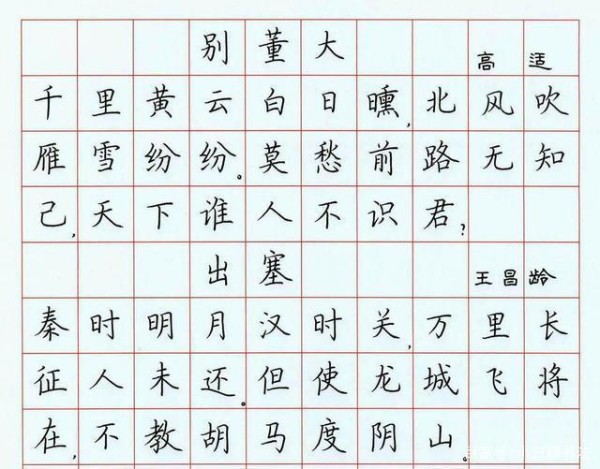 别董大 高适
千里黄云白日曛,北风吹
雁雪纷纷。莫愁前路无知
己,天下谁人不识君?
出塞 王昌龄
秦时明月汉时关,万里长
征人未还。但使龙城飞将
在,不教胡马度阴山。